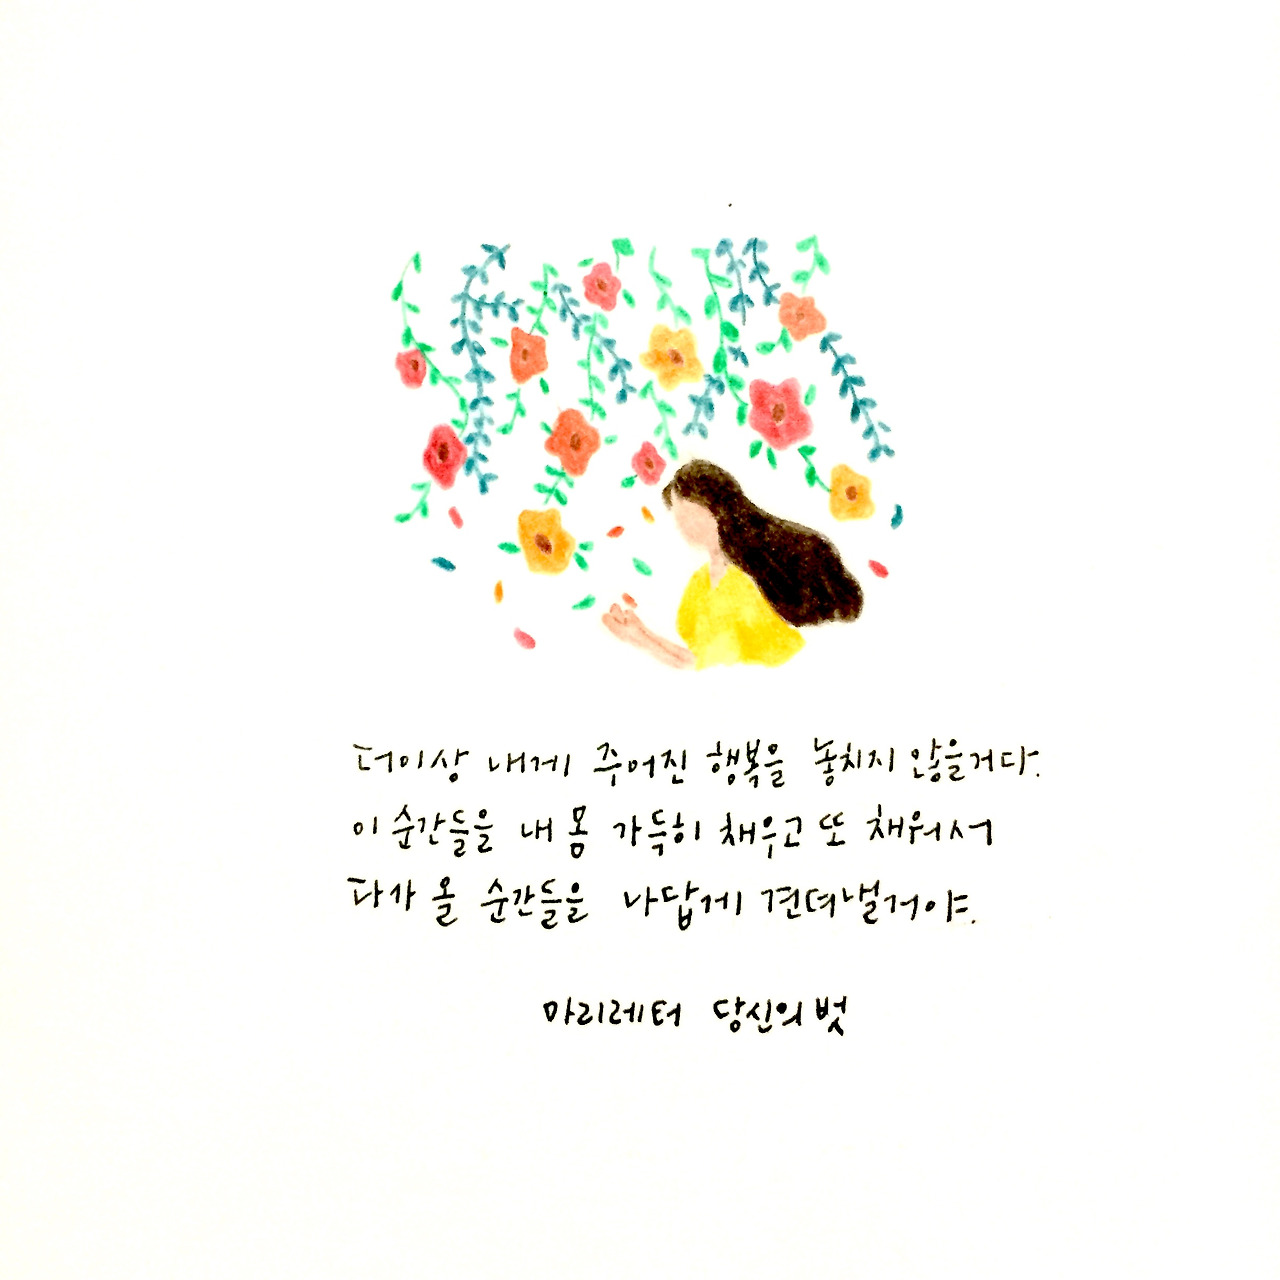 더이상 내게 주어진 행복을 놓치지 않을거다.
이 순간들을 내 몸 가득히 채우고 또 채워서
다가 올 순간들을 나답게 견뎌낼거야.
마리레터 당신의 벗